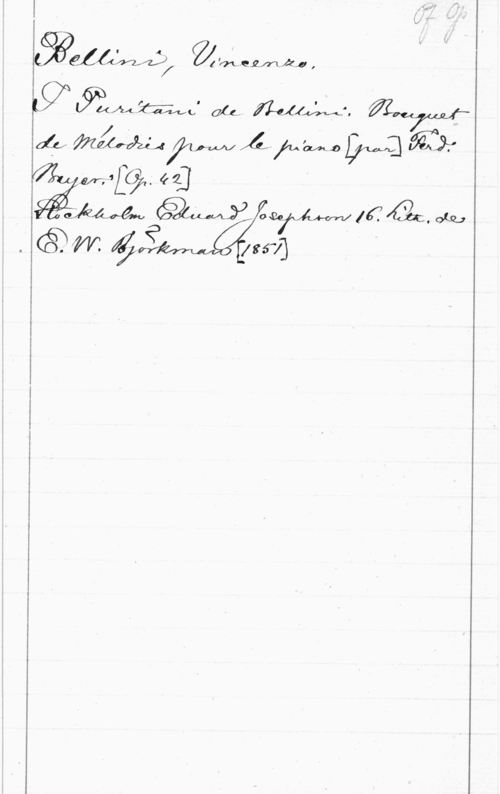 Of Op
Bellini, Vincenzo.
I Puritani de Bellini. Bouquet
de Mélodies pour le piano [par] Ferd:
Beyer. [Op. 42]
Stockholm Eduard Josephson 16. Lith. de
E. W. Björkman [1851]